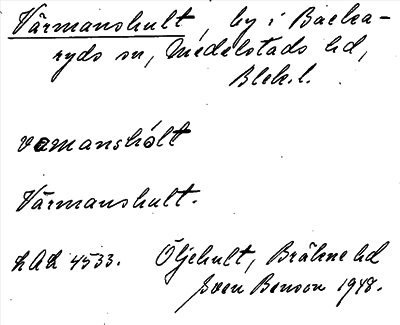 Värmanshult, by i Backa-
ryds sn, Medelstads hd,
Blek. l.
vamanshólt
Värmanshult.
LAL 4533. Öljehult, Bräkne hd
Sven Benson 1948.